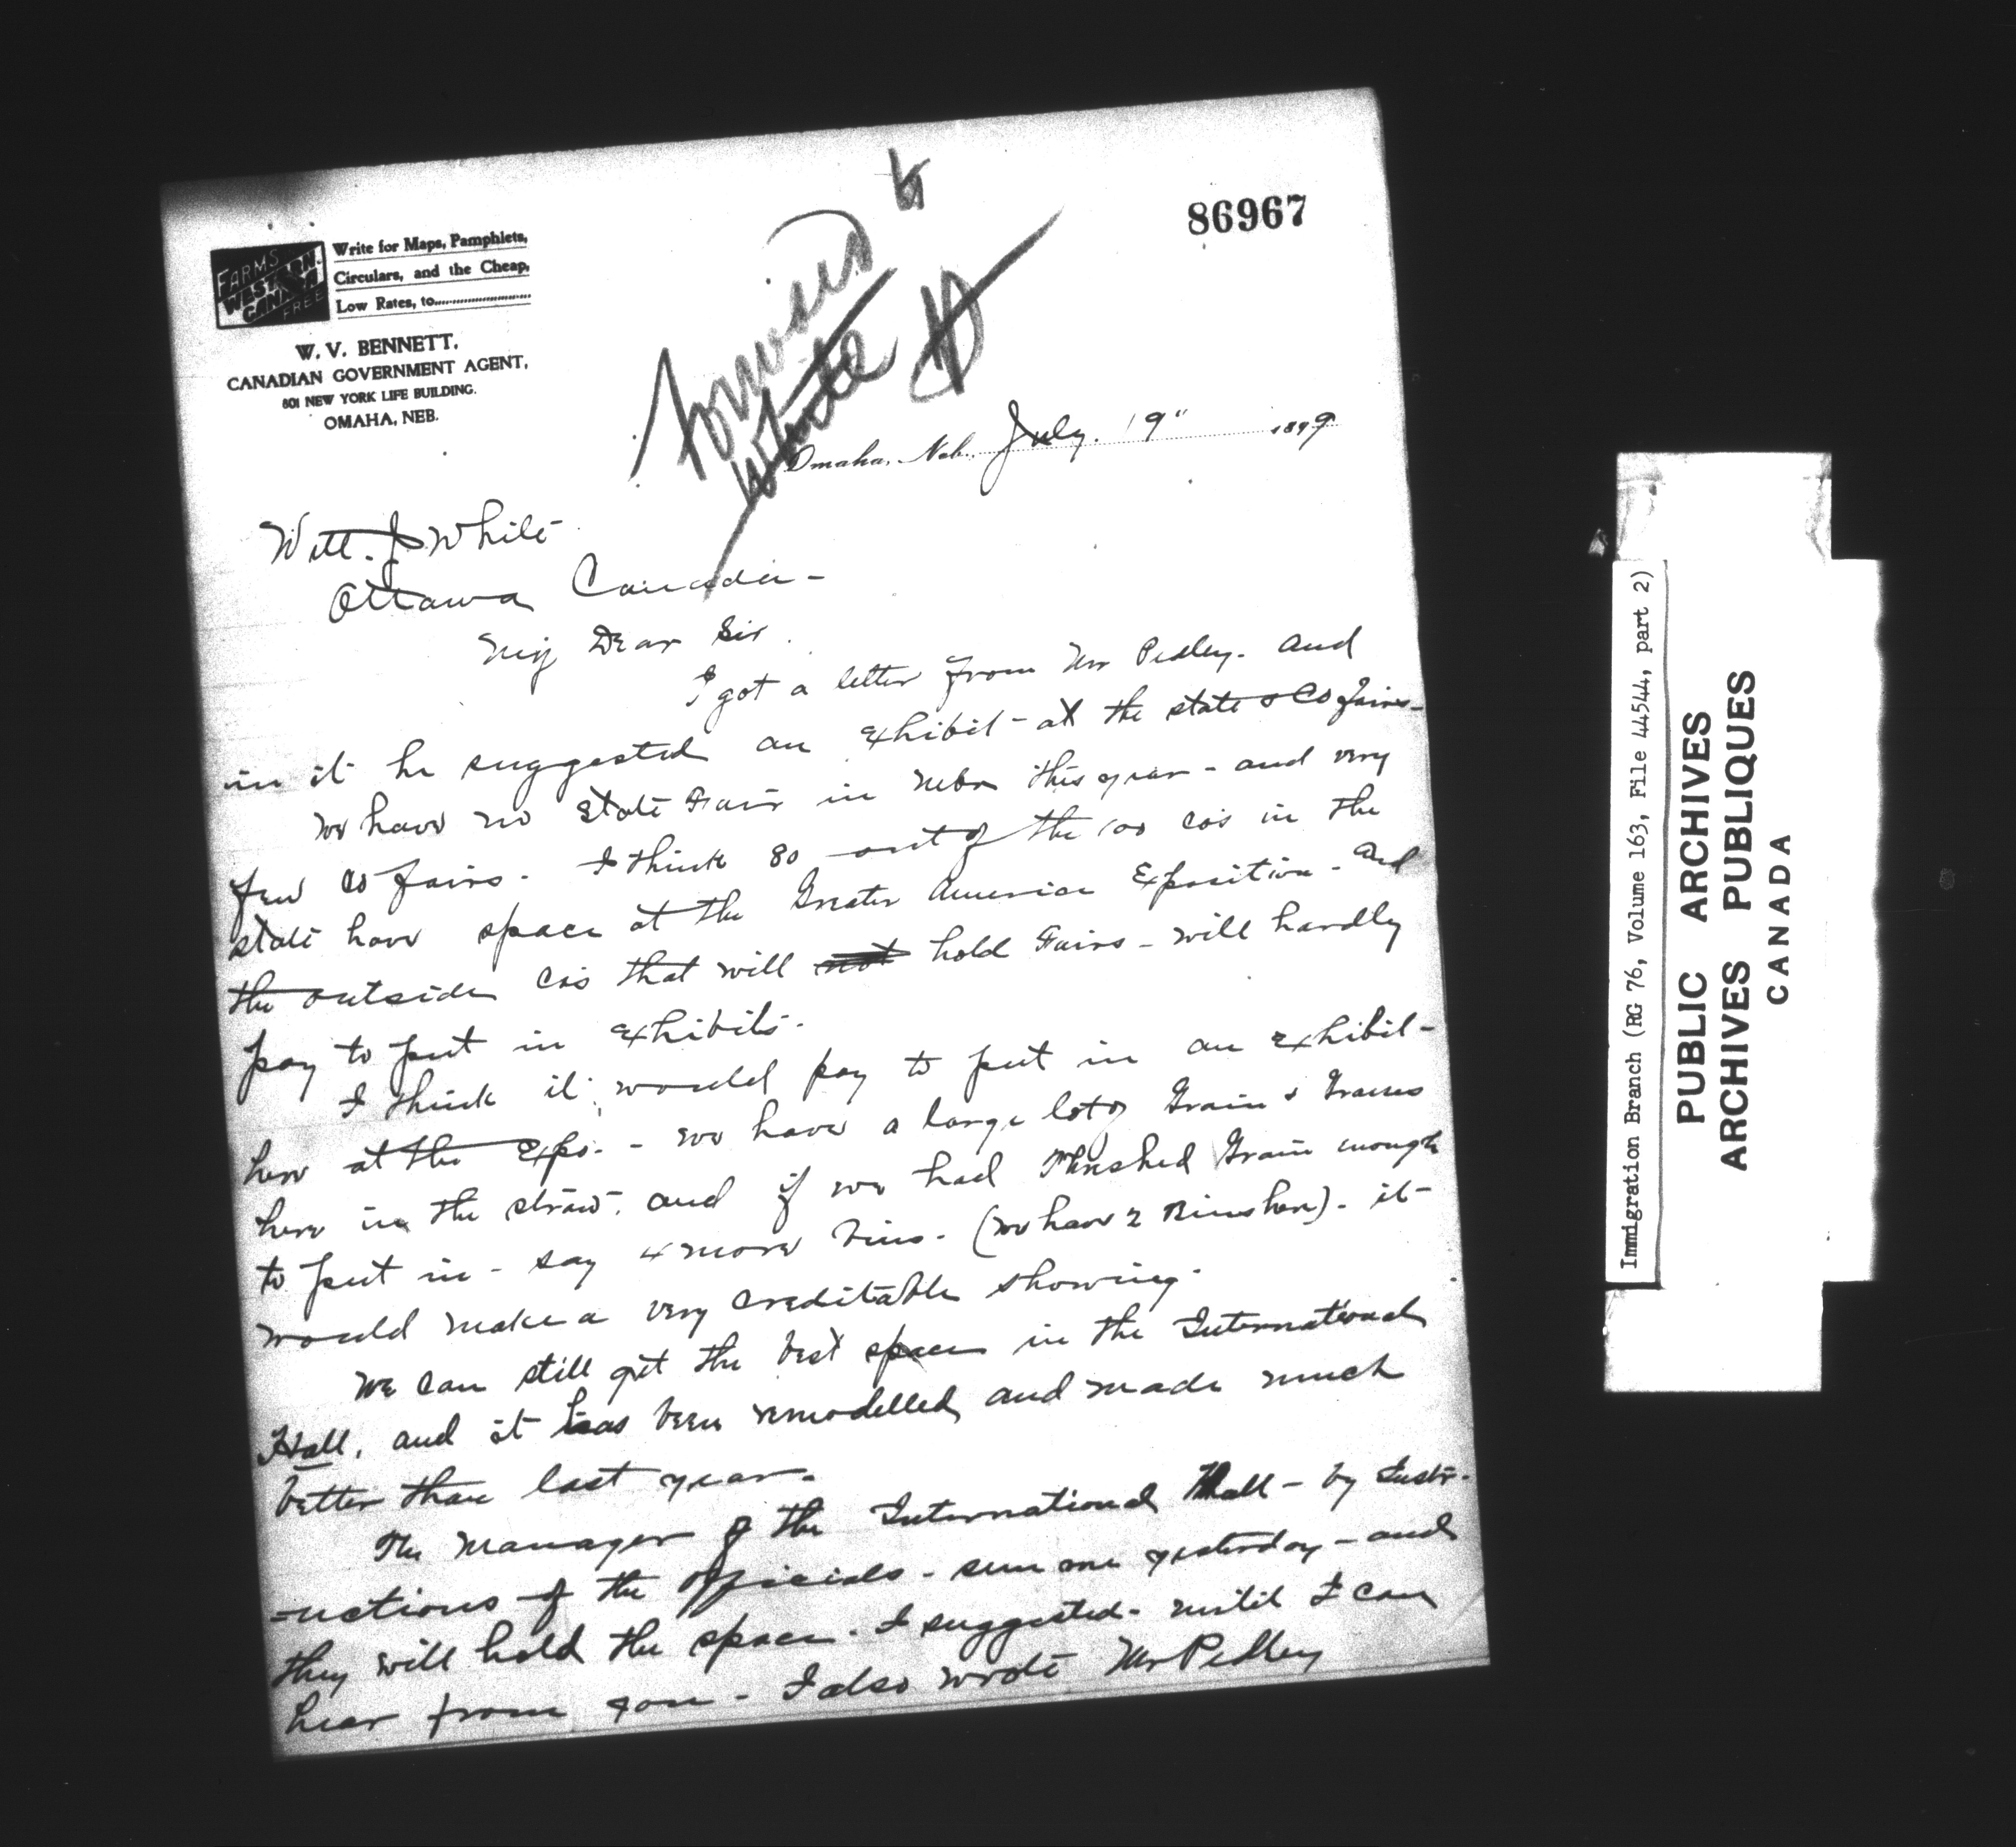 86967
FARMS
WESTERN
CANADA
FREE
Write for Maps, Pamphlets,
Circulars, and the Cheap,
Low Rates, to
W. V. BENNETT,
CANADIAN GOVERNMENT AGENT,
801 NEW YORK LIFE BUILDING.
OMAHA, NEB.
Omaha, Neb., July. 19" 1899
Will. J White
Ottawa Canada -
My Dear Sir.
I got a letter from Mr Pedley. and
in it he suggested an Exhibit - at the state & Co fairs -
We have no State Fair in Nebr this year - and very
few Co fairs. I think 80 out of the 100 cos in the
state have space at the Greater America Exposition - and
the outside cos that will not hold Fairs - will hardly
pay to put in Exhibits.
I think it would pay to put in an Exhibit -
here at the Expo. - we have a large lot of Grain & Grasses
here in the straw. and if we had Thrashed Grain enough
to put in - say 4 more bins. (we have 2 Bins here). it -
would make a very creditable showing.
We can still get the best space in the International
Hall, and it has been remodelled and made much
better than last year.
The Manager of the International Hall - by Instr-
-uctions of the officials - seen me yesterday - and
they will hold the space. I suggested. until I can
hear from you - I also wrote Mr Pedley
Immigration Branch (RG 76, Volume 163, File 44544, part 2)
PUBLIC ARCHIVES
ARCHIVES PUBLIQUES
CANADA